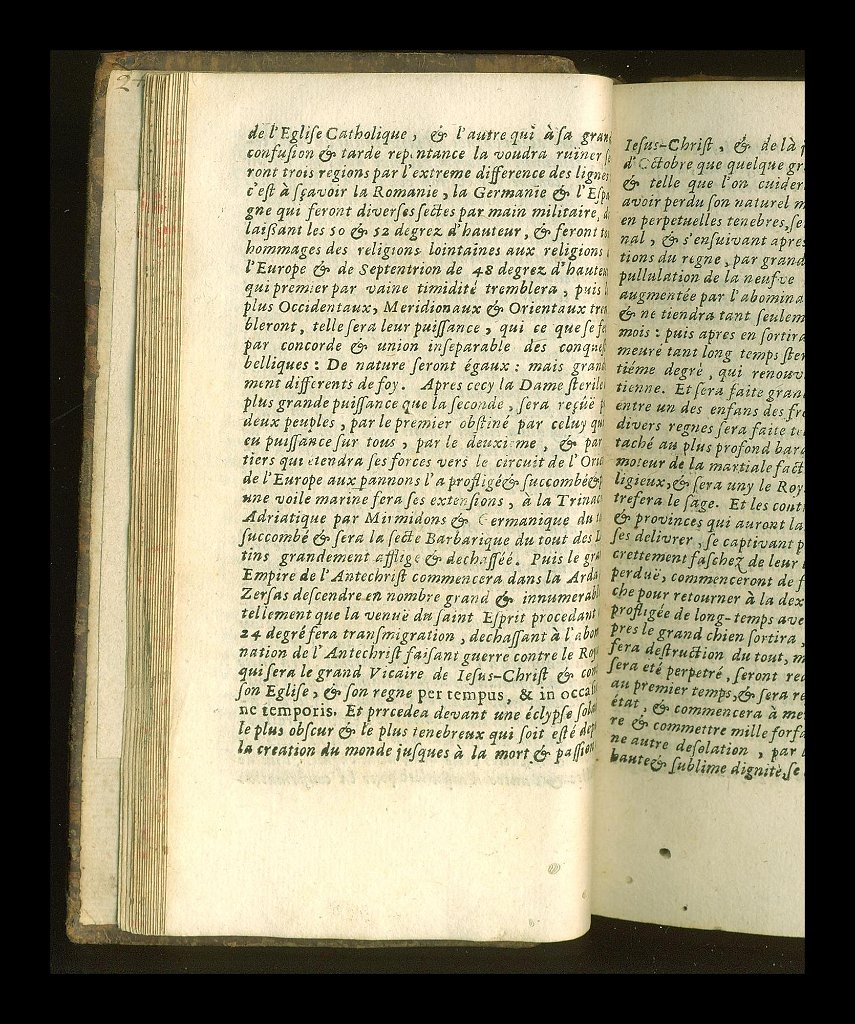 24
de l'Eglise Catholique, & l'autre qui à sa gran
confusion & tarde repentance la voudra ruiner se
ront trois regions par l'extreme difference des lignes
c'est à sçavoir la Romanie, la Germanie & l'Espa
gne qui feront diverses sectes par main militaire, d
laißant les 50 & 52 degrez d'hauteur, & feront to
hommages des religions lointaines aux religions
l'Europe & de Septentrion de 48 degrez d'hauteu
qui premier par vaine timidité tremblera, puis l
plus Occidentaux, Meridionaux & Orientaux tre
bleront, telle sera leur puissance, qui ce que se fe
par concorde & union inseparable des conques
belliques: De nature seront égaux: mais grand
ment differents de foy. Apres cecy la Dame sterile
plus grande puissance que la seconde, sera reçûë p
deux peuples, par le premier obstiné par celuy qui
eu puissance sur tous, par le deuxieme, & par
tiers qui etendra ses forces vers le circuit de l'Orie
de l'Europe aux pannons l'a profligé & succombé & p
une voile marine fera ses extensions, à la Trinac
Adriatique par Mirmidons & Germanique du t
succombé & sera la secte Barbarique du tout des L
tins grandement afflige & dechasséé. Puis le gra
Empire de l'Antechrist commencera dans la Arda
Zersas descendre en nombre grand & innumerabl
tellement que la venuë du saint Esprit procedant
24 degré fera transmigration, dechassant à l'abom
nation de l'Antechrist faisant guerre contre le Roy
qui sera le grand Vicaire de Iesus-Christ & con
son Eglise, & son regne per tempus, & in occasi
ne temporis. Et prrcedea devant une éclypse solai
le plus obscur & le plus tenebreux qui soit esté dep
la creation du monde jusques à la mort & passion
Iesus-Christ, & de là j
d'Octobre que quelque gr
& telle que l'on cuider
avoir perdu son naturel m
en perpetuelles tenebres, se
nal, & s'ensuivant apres
tions du regne, par grand
pullulation de la neufve
augmentée par l'abomina
& ne tiendra tant seulem
mois: puis apres en sortira
meuré tant long temps ster
tiéme degré, qui renouv
tienne. Et sera faite gran
entre un des enfans des fr
divers regnes sera faite te
taché au plus profond bara
moteur de la martiale fact
ligieux, & sera uny le Roy
trefera le sage. Et les cont
& provinces qui auront la
ses delivrer, se captivant p
crettement faschez de leur l
perduë, commenceront de f
che pour retourner à la dex
profligée de long-temps ave
pres le grand chien sortira,
fera destruction du tout, m
sera eté perpetré, seront red
au premier temps, & sera re
état, & commencera à me
re & commettre mille forfa
ne autre desolation, par l
haute & sublime dignité, se